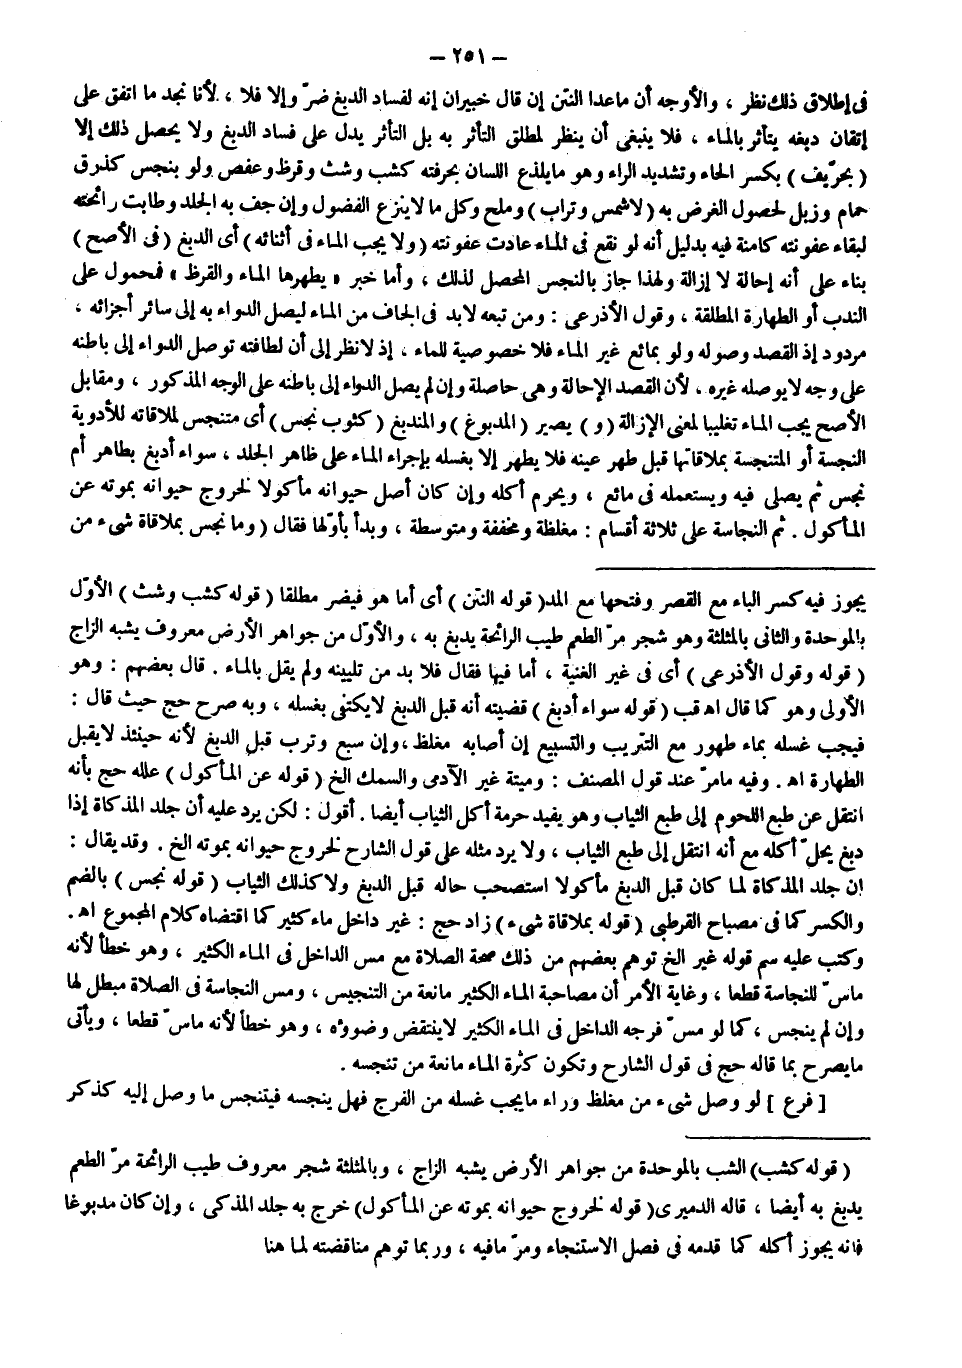 – ٢٥١ –
فى إطلاق ذلك نظر ، والأوجه أن ماعدا النتن إن قال خبيران إنه لفساد الدبغ ضرّ وإلا فلا ، لأنا نجد ما اتفق على
إتقان دبغه يتأثر بالماء ، فلا ينبغى أن ينظر لمطلق التأثر به بل التأثر يدل على فساد الدبغ ولا يحصل ذلك إلا
( بحرّيف ) بكسر الحاء وتشديد الراء وهو مايلذع اللسان بحرفته كشب وشث وقرظ وعفص ولو بنجس كذرق
حمام وزبل لحصول الغرض به ( لاشمس وتراب ) وملح وكل ما لاينزع الفضول وإن جف به الجلد وطابت رائحته
لبقاء عفونته كامنة فيه بدليل أنه لو نقع فى الماء عادت عفونته ( ولا يجب الماء فى أثنائه ) أى الدبغ ( فى الأصح )
بناء على أنه إحالة لا إزالة ولهذا جاز بالنجس المحصل لذلك ، وأما خبر « يطهرها الماء والقرظ » فمحمول على
الندب أو الطهارة المطلقة ، وقول الأذرعى : ومن تبعه لابد فى الجاف من الماء ليصل الدواء به إلى سائر أجزائه ،
مردود إذ القصد وصوله ولو بمائع غير الماء فلا خصوصية للماء ، إذ لانظر إلى أن لطافته توصل الدواء إلى باطنه
على وجه لايوصله غيره ، لأن القصد الإحالة وهى حاصلة وإن لم يصل الدواء إلى باطنه على الوجه المذكور ، ومقابل
الأصح يجب الماء تغليبا لمعنى الإزالة ( و ) يصير ( المدبوغ ) والمندبغ ( كثوب نجس ) أى متنجس لملاقاته للأدوية
النجسة أو المتنجسة بملاقاتها قبل طهر عينه فلا يطهر إلا بغسله بإجراء الماء على ظاهر الجلد ، سواء أدبغ بطاهر أم
نجس ثم يصلى فيه ويستعمله فى مائع ، ويحرم أكله وإن كان أصل حيوانه مأكولا لخروج حيوانه بموته عن
المأكول . ثم النجاسة على ثلاثة أقسام : مغلظة ومخففة ومتوسطة ، وبدأ بأوّلها فقال ( وما نجس بملاقاة شىء من
يجوز فيه كسر الباء مع القصر وفتحها مع المد ( قوله النتن ) أى أما هو فيضر مطلقا ( قوله كشب وشث ) الأوّل
بالموحدة والثانى بالمثلثة وهو شجر مرّ الطعم طيب الرائحة يدبغ به ، والأوّل من جواهر الأرض معروف يشبه الزاج
( قوله وقول الأذرعى ) أى فى غير الغنية ، أما فيها فقال فلا بد من تليينه ولم يقل بالماء . قال بعضهم : وهو
الأولى وهو كما قال اه‍ قب ( قوله سواء أدبغ ) قضيته أنه قبل الدبغ لايكتفى بغسله ، وبه صرح حج حيث قال :
فيجب غسله بماء طهور مع التتريب والتسبيع إن أصابه مغلظ ، وإن سبع وترب قبل الدبغ لأنه حينئذ لايقبل
الطهارة اه‍ . وفيه مامرّ عند قول المصنف : وميتة غير الآدمى والسمك الخ ( قوله عن المأكول ) علله حج بأنه
انتقل عن طبع اللحوم إلى طبع الثياب وهو يفيد حرمة أكل الثياب أيضا . أقول : لكن يرد عليه أن جلد المذكاة إذا
دبغ يحلّ أكله مع أنه انتقل إلى طبع الثياب ، ولا يرد مثله على قول الشارح لخروج حيوانه بموته الخ . وقد يقال :
إن جلد المذكاة لما كان قبل الدبغ مأكولا استصحب حاله قبل الدبغ ولا كذلك الثياب ( قوله نجس ) بالضم
والكسر كما فى مصباح القرطبى ( قوله بملاقاة شىء ) زاد حج : غير داخل ماء كثير كما اقتضاه كلام المجموع اه‍ .
وكتب عليه سم قوله غير الخ توهم بعضهم من ذلك صحة الصلاة مع مس الداخل فى الماء الكثير ، وهو خطأ لأنه
ماسّ للنجاسة قطعا ، وغاية الأمر أن مصاحبة الماء الكثير مانعة من التنجيس ، ومس النجاسة فى الصلاة مبطل لها
وإن لم ينجس ، كما لو مسّ فرجه الداخل فى الماء الكثير لاينتقض وضوؤه ، وهو خطأ لأنه ماسّ قطعا ، ويأتى
مايصرح بما قاله حج فى قول الشارح وتكون كثرة الماء مانعة من تنجسه .
[ فرع ] لو وصل شىء من مغلظ وراء مايجب غسله من الفرج فهل ينجسه فيتنجس ما وصل إليه كذكر
( قوله كشب ) الشب بالموحدة من جواهر الأرض يشبه الزاج ، وبالمثلثة شجر معروف طيب الرائحة مرّ الطعم
يدبغ به أيضا ، قاله الدميرى ( قوله لخروج حيوانه بموته عن المأكول ) خرج به جلد المذكى ، وإن كان مدبوغا
فانه يجوز أكله كما قدمه فى فصل الاستنجاء ومرّ مافيه ، وربما توهم مناقضته لما هنا